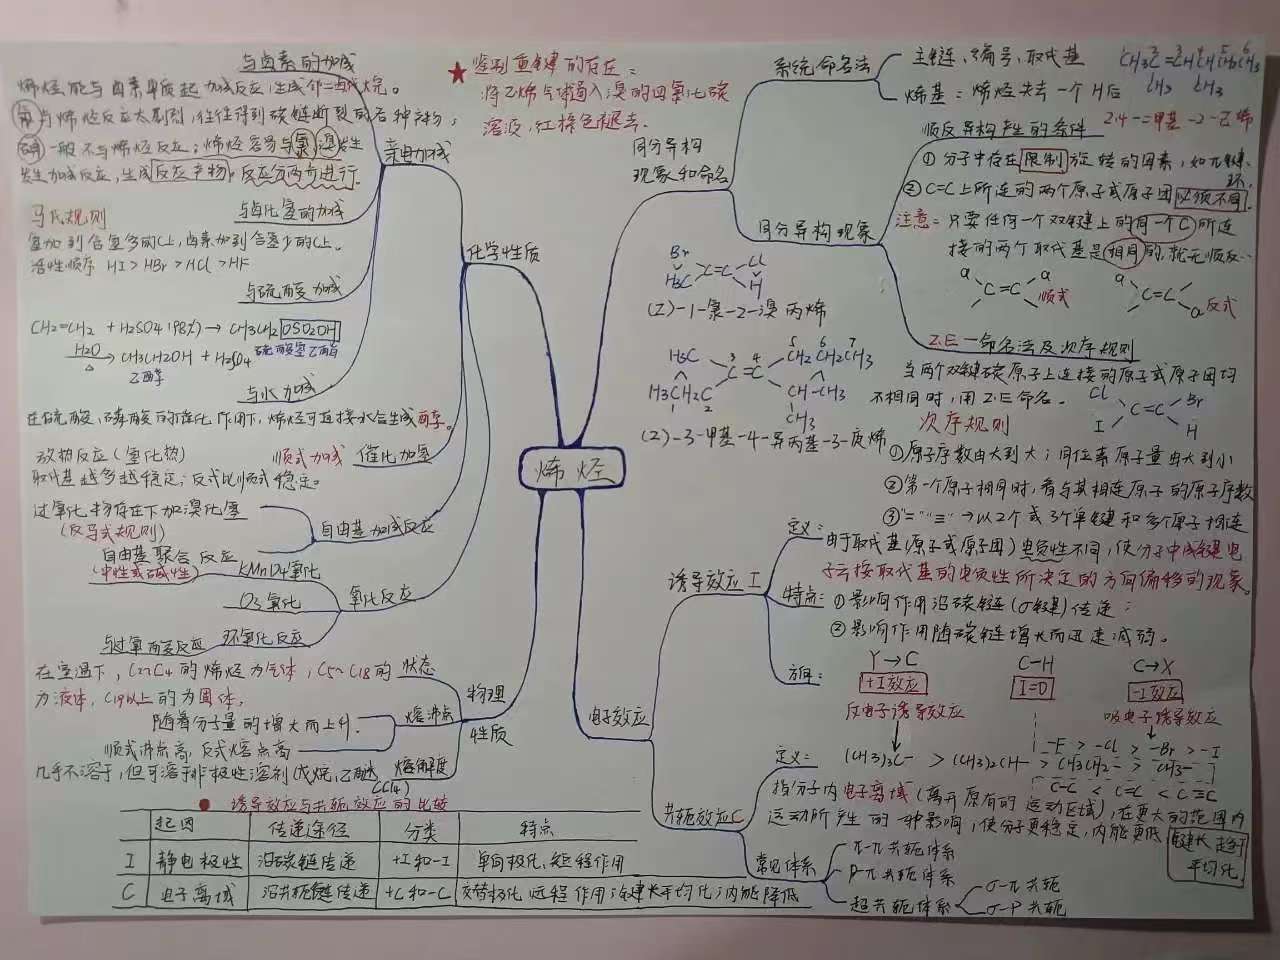 与卤素的加成
烯烃能与卤素单质起加成反应,生成邻二卤代烷。
氟与烯烃反应太剧烈,往往得到碳链断裂的各种产物;
碘一般不与烯烃反应;烯烃容易与氯溴发生
发生加成反应,生成反应产物,反应分两步进行.
亲电加成
与卤化氢的加成
马氏规则
氢加到含氢多的C上,卤素加到含氢少的C上。
活性顺序 HI>HBr>HCl>HF
与硫酸加成
CH2=CH2 + H2SO4(98%) → CH3CH2OSO2OH
硫酸氢乙酯
H2O
△
→ CH3CH2OH + H2SO4
乙醇
与水加成
在硫酸、磷酸的催化作用下,烯烃可直接水合生成醇。
放热反应(氢化热) 顺式加成 催化加氢
取代基越多越稳定;反式比顺式稳定。
过氧化物存在下加溴化氢
(反马式规则)
自由基加成反应
自由基聚合反应
(中性或碱性) KMnO4氧化
O3氧化
氧化反应
与过氧酸反应 环氧化反应
化学性质
在室温下,C2~C4的烯烃为气体,C5~C18的 状态
为液体,C19以上的为固体,
随着分子量的增大而上升.
熔沸点
顺式沸点高,反式熔点高
几乎不溶于,但可溶于非极性溶剂(戊烷,乙醚 溶解度
CCl4)
物理
性质
★ 鉴别重键的存在:
将乙烯气体通入溴的四氯化碳
溶液,红棕色褪去.
同分异构
现象和命名
系统命名法
主链、编号、取代基
烯基:烯烃失去一个H后
CH3C=CHCHCH2CH3
2 3 4 5 6
CH3 CH3
2.4-二甲基-2-己烯
同分异构现象
顺反异构产生的条件
①分子中存在限制旋转的因素,如π键、
环.
②C=C上所连的两个原子或原子团必须不同.
注意:只要任何一个双键上的同一个C所连
接的两个取代基是相同的,就无顺反…
a a
C=C 顺式
a
C=C
a 反式
Z.E-命名法及次序规则
当两个双键碳原子上连接的原子或原子团均
不相同时,用Z.E命名。
Cl Br
C=C
I H
次序规则
①原子序数由大到大;同位素原子量由大到小
②第一个原子相同时,看与其相连原子的原子序数
③"=""≡"→以2个或3个单键和多个原子相连
Br Cl
C=C
H3C H
(Z)-1-氯-2-溴丙烯
H3C CH2CH2CH3
3 4 5 6 7
C=C
H3CH2C CH-CH3
1 2
CH3
(Z)-3-甲基-4-异丙基-3-庚烯
烯烃
电子效应
诱导效应 I
定义:由于取代基(原子或原子团)电负性不同,使分子中成键电
子云按取代基的电负性所决定的方向偏移的现象。
特点:①影响作用沿碳链(σ键)传递;
②影响作用随碳链增长而迅速减弱。
方向:
Y→C C-H C→X
+I效应 I=0 -I效应
斥电子诱导效应 吸电子诱导效应
-F > -Cl > -Br > -I
(CH3)3C- > (CH3)2CH- > CH3CH2- > CH3-
C-C < C=C < C≡C
共轭效应C
定义:指分子内电子离域(离开原有的运动区域),在更大的范围内
运动所产生的一种影响,使分子更稳定,内能更低
键长趋于
平均化
常见体系
π-π共轭体系
P-π共轭体系
超共轭体系
σ-π共轭
σ-P共轭
● 诱导效应与共轭效应的比较
起因 传递途径 分类 特点
I 静电极性 沿碳链传递 +I和-I 单向极化,短程作用
C 电子离域 沿共轭链传递 +C和-C 交替极化,远程作用;键长平均化;内能降低